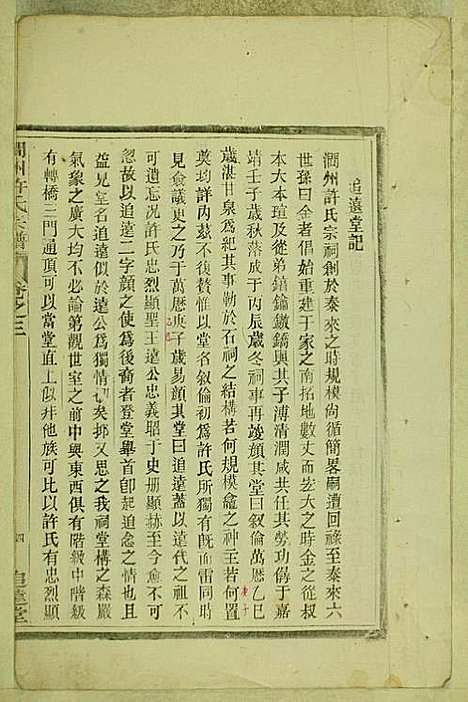 追遠堂記
潤州許氏宗祠創於泰來之時規模尚循簡畧嗣遭回祿至泰來六
世孫曰金者倡始重建于家之南拓地數丈而宏大之時金之從叔
本大本瑄及從弟錯鑰鐓鐈與其子溥清潤咸共任其勞功僝于嘉
靖壬子歲秋落成于丙辰歲冬祠事再竣顏其堂曰叙倫萬厯乙巳
歲湛甘泉為紀其事勒於石祠之結構若何規模龕之神主若何置
奠均詳內茲不復贅惟以堂名叙倫初為許氏所獨有旣而雷同時
見僉議更之乃于萬厯庚子歲易顏其堂曰追遠蓋以遠代之祖不
可遺忘况許氏忠烈顯聖王遠公忠義昭于史册顯赫至今愈不可
忽故以追遠二字顏之使為後裔者登堂舉首卽起追念之情也且
益見堂名追遠似於遠公為獨情切矣抑又思之我祠堂構之森嚴
氣象之廣大均不必論第觀世室之前中與東西俱有階級中階級
有轉橋三門通頂可以當堂直上似非他族可比以許氏有忠烈顯
潤州許氏宗譜
卷之三
四
追遠堂
庚子